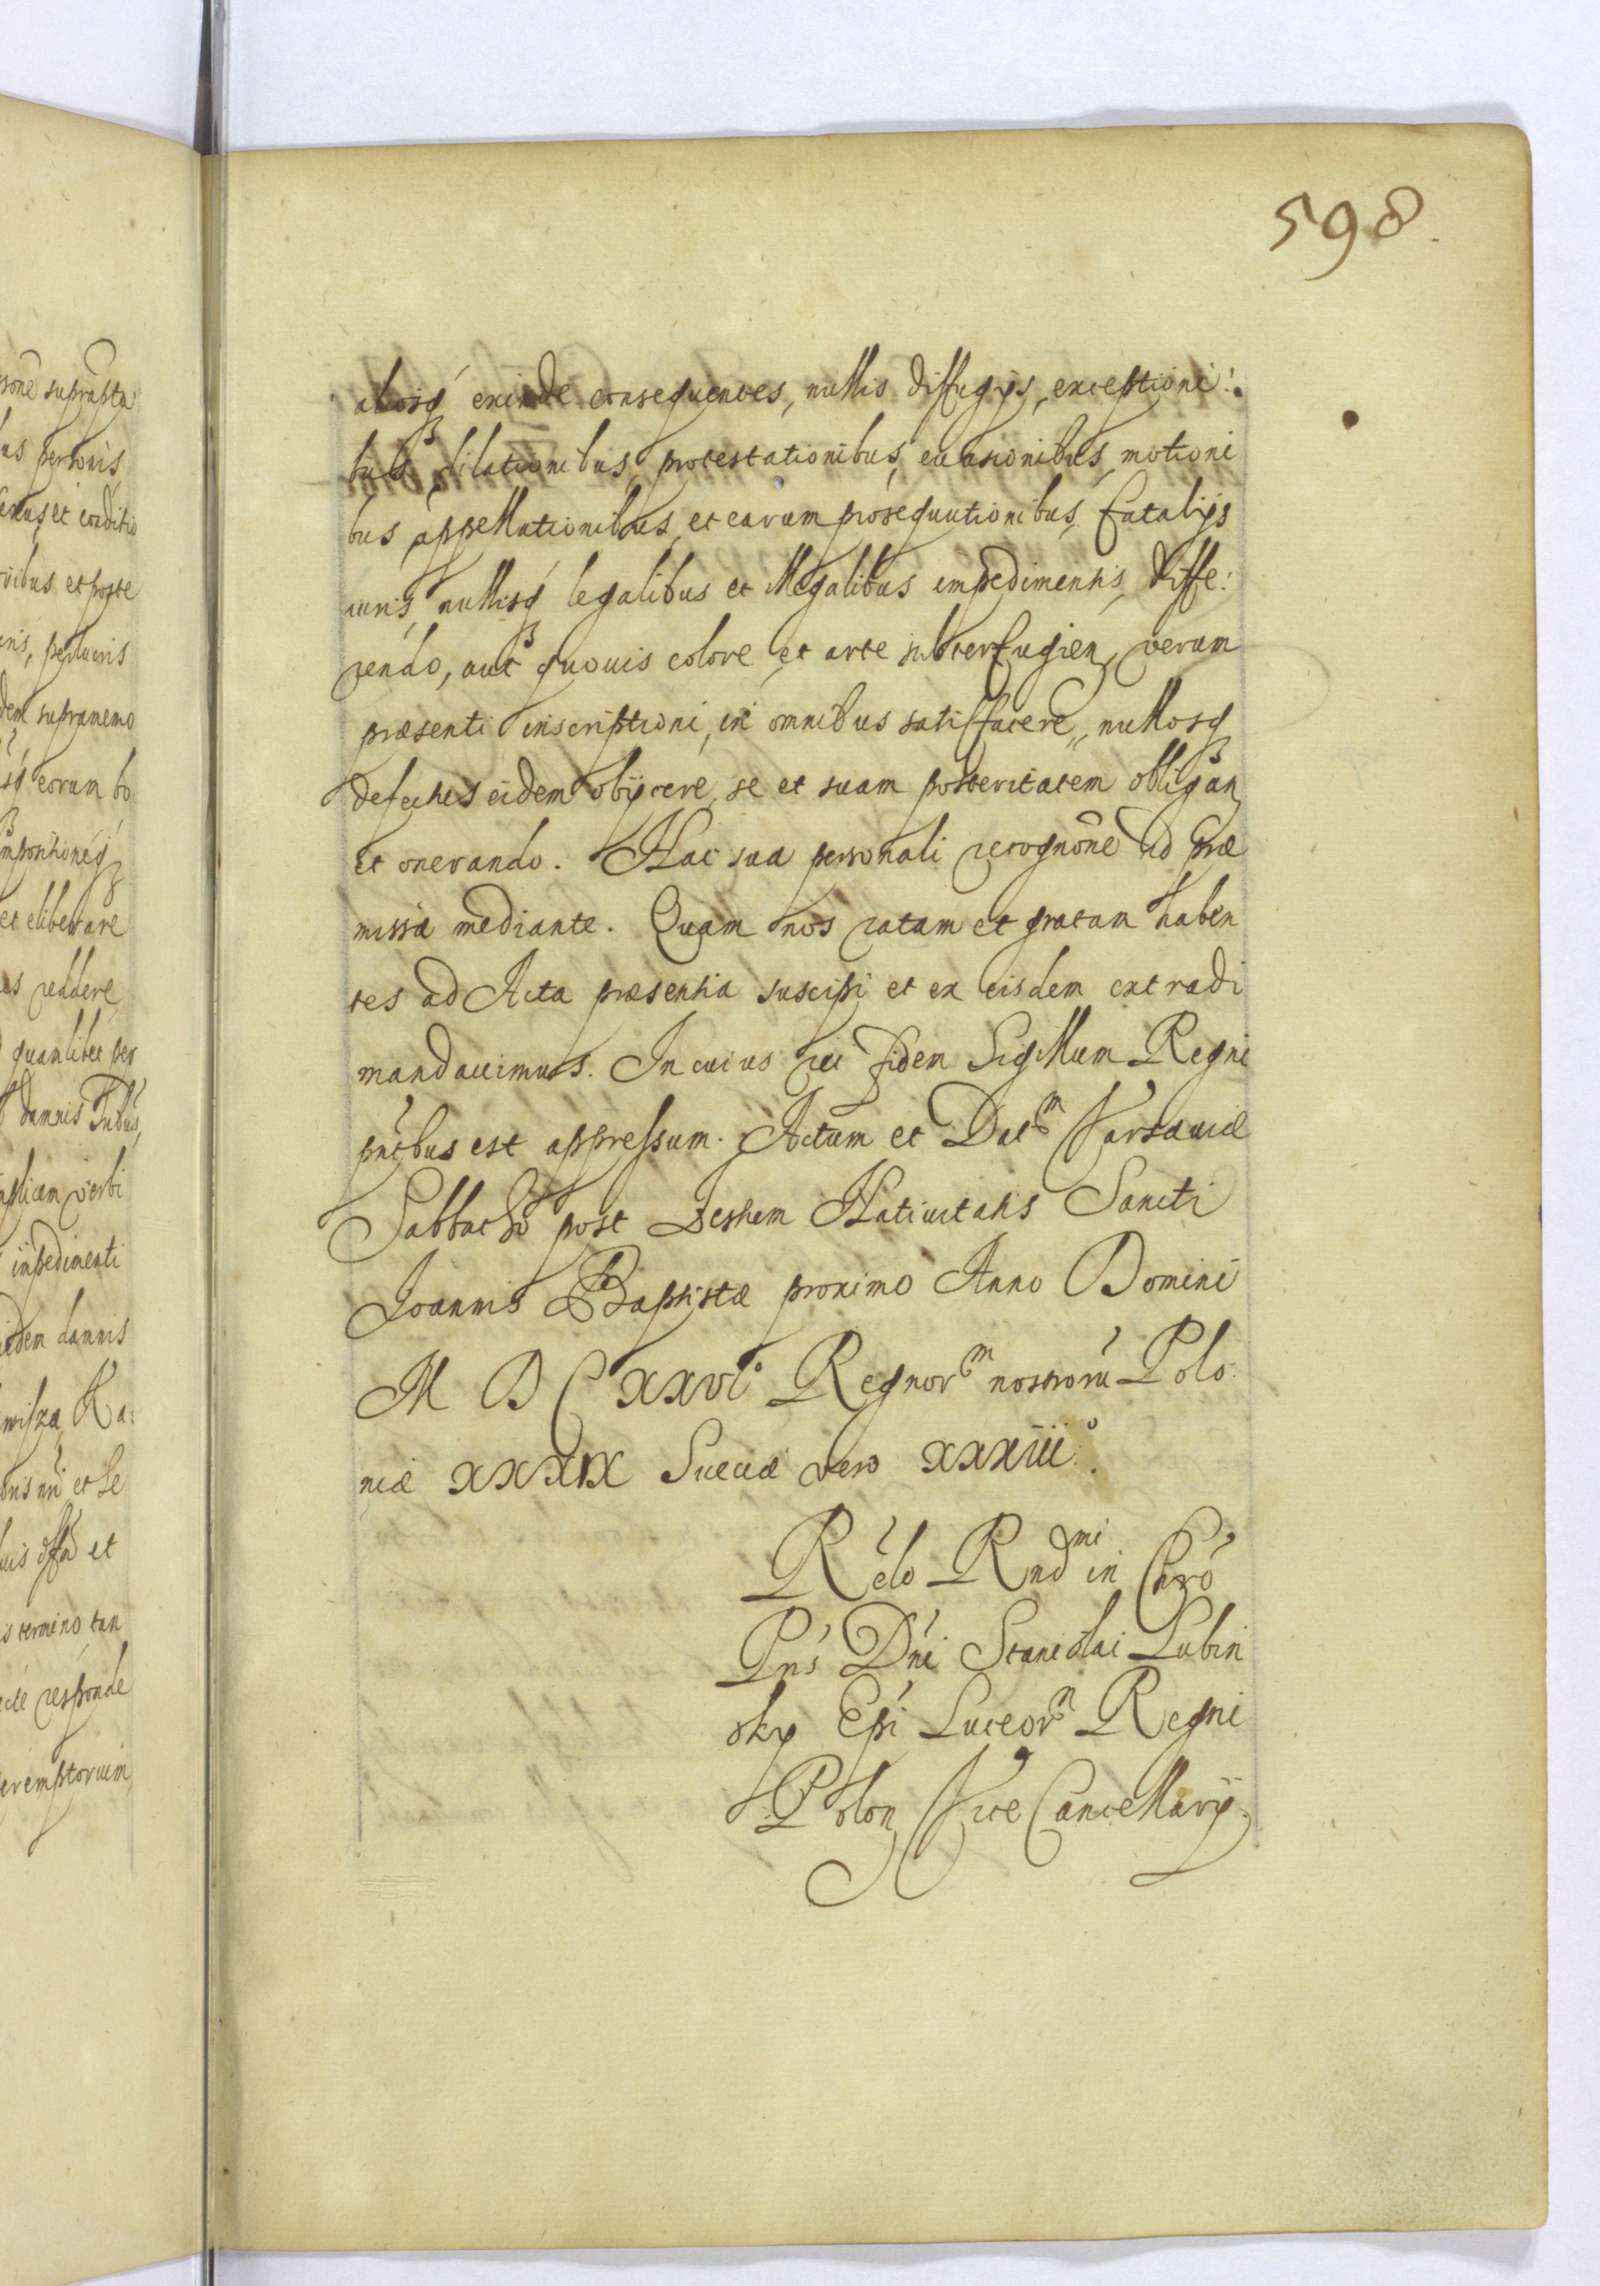 598.
aliosq́ exinde consequentes, nullis diffugijs, exceptioni:
bus, dilationibus, protestationibus, euasionibus, motioni
bus appellationibus, et earum prosequutionibus, fatalijs
iuris, nullisq́ legalibus et illegalibus impedimentis, diffe:
rendo, aut quouis colore, et arte subterfugien, verum
præsenti inscriptioni, in omnibus satisfacere, nullosq
defectus eidem obijcere, se et suam posteritatem obligan
et onerando. Hac sua personali recognõne ad præ
missa mediante. Quam nos ratam et gratam haben
tes ad Acta præsentia suscipi et ex eisdem extradi
mandauimus. In cuius rei fidem Sigillum Regni
pñtibus est appressum. Actum et Datm Varsauiæ
Sabbatho post Festum Natiuitatis Sancti
Joannis Baptistæ proximo Anno Domini
M D C XXVIo Regnorm nostrorũ Polo
niæ XXXIX Sueciæ vero XXXIIIo.
R̃elo Rndmi in Chrõ
Pñs Dñi Stanislai Lubin
sky Epĩ Luceorn Regni
Polon Vice Cancellarij.
rsonẽ suprasta
us personis,
et conditio
ribus et poste
dem supramemo
eorum bo
et eliberare
reddere,
quamlibet per
damnis
verbi
impedimenti
idem damnis
Ka:
et Se
et
s termino tan
responde
peremptorium